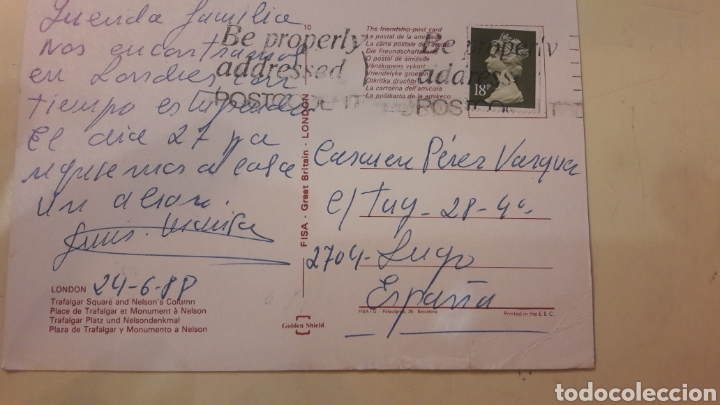 Querida familia
Nos encontramos
en Londres un
tiempo estupendo
El dia 27 ya
regresamos a casa
Un abrazo.
LONDON 24-6-88
Trafalgar Square and Nelson's Column
Place de Trafalgar et Monument à Nelson
Trafalgar Platz und Nelsondenkmal
Plaza de Trafalgar y Monumento a Nelson
10
FISA - Great Britain - LONDON
Golden Shield
The friendship-post card
La postal de la amistad
La carte postale de
Die Freundschafts
O postal de amizade
Vänskapens vykort
La cartolina dell'amicizia
Be properly
addressed
POSTCODE IT
Be properly
addressed
POSTCODE IT
18P
Carmen Pérez Vazquez
c/ Tuy - 28-4º
2704- Lugo
España
Printed in the E.E.C.
todocoleccion
todocoleccion.net